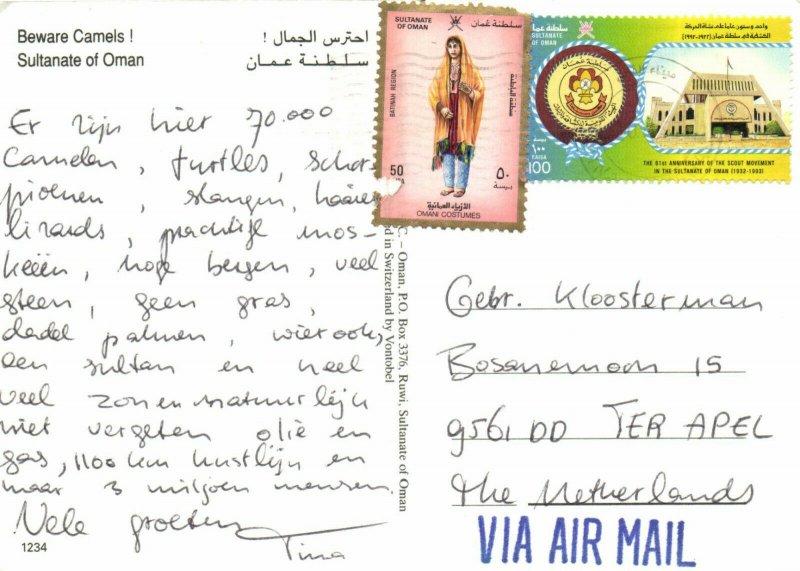 Beware Camels !
احترس الجمال !
Sultanate of Oman
سلطنة عمان
Er zijn hier 70.000
Camelen, turtles, schor-
pioenen, slangen, haaien
lizards, prachtige mos-
keeën, hoge bergen, veel
steen, geen gras,
dadel palmen, wierook,
een sultan en heel
veel zon en natuurlijk
niet vergeten olie en
gas, 1100 km kustlijn en
maar 3 miljoen mensen.
Vele groeten
Tina
1234
SULTANATE OF OMAN
سلطنة عمان
BATINAH REGION
منطقة الباطنة
50
٥٠
بيسة
الأزياء العمانية
OMANI COSTUMES
سلطنة عمان
SULTANATE OF OMAN
واحد وستون عاما على نشأة الحركة
الكشفية في سلطنة عمان (١٩٣٢-١٩٩٣)
سلطنة عمان
بيسة
١٠٠
BAISA
100
THE 61st ANNIVERSARY OF THE SCOUT MOVEMENT
IN THE SULTANATE OF OMAN (1932-1993)
C. – Oman, P.O. Box 3376, Ruwi, Sultanate of Oman
ed in Switzerland by Vontobel
Gebr. Kloosterman
Bosanemoon 15
9561 DD TER APEL
The Netherlands
VIA AIR MAIL